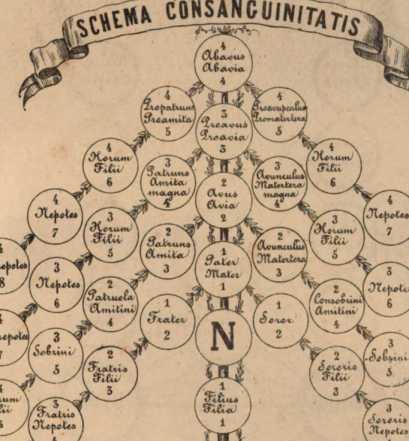 SCHEMA CONSANGUINITATIS
4
Abavus
Abavia
4
4
Propatruus
Proamita
5
3
Proavus
Proavia
3
4
Proavunculus
Promatertera
5
4
Horum
Filii
6
3
Patruus
Amita
magna
4
2
Avus
Avia
2
3
Avunculus
Matertera
magna
4
4
Horum
Filii
6
4
Nepotes
7
3
Horum
Filii
5
2
Patruus
Amita
3
1
Pater
Mater
1
2
Avunculus
Matertera
3
3
Horum
Filii
5
4
Nepotes
7
4
8
3
Nepotes
6
2
Patruela
Amitini
4
1
Frater
2
N
1
Soror
2
2
Consobrini
Amitini
4
3
Nepotes
6
7
3
Sobrini
5
2
Fratris
Filii
3
1
Filius
Filia
1
2
Sororis
Filii
3
3
Sobrini
5
3
Fratris
Nepotes
4
3
Sororis
Nepotes